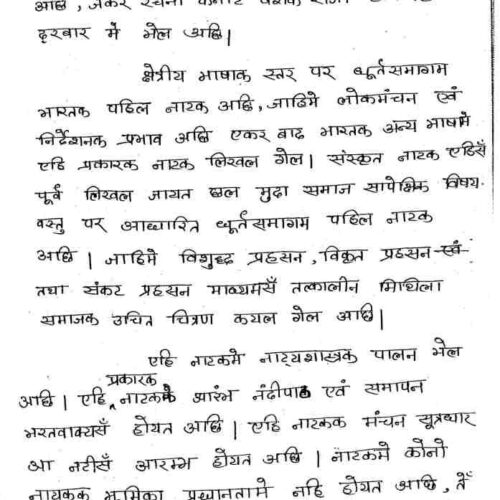 अछि, जकर रचना कर्नाट वंशक राजा
दरबार मे भेल अछि।
क्षेत्रीय भाषाक स्तर पर धूर्तसमागम
भारतक पहिल नाटक अछि, जाहिमे लोकमंचन एवं
निर्देशनक प्रभाव अछि एकर बाद भारतक अन्य भाषामे
एहि प्रकारक नाटक लिखल गेल। संस्कृत नाटक एहिसँ
पूर्व लिखल जायत छल मुदा समाज सापेक्षिक विषय-
वस्तु पर आधारित धूर्तसमागम पहिल नाटक
अछि। जाहिमे विशुद्ध प्रहसन, विकृत प्रहसन
तथा संकट प्रहसन माध्यमसँ तत्कालीन मिथिला
समाजक उचित चित्रण कयल गेल अछि।
एहि नाटकमे नाट्यशास्त्रक पालन भेल
अछि। एहि प्रकारक नाटकमे प्रारंभ नंदीपाठ एवं समापन
भरतवाक्यसँ होयत अछि। एहि नाटकक मंचन सूत्रधार
आ नटीसँ आरम्भ होयत अछि। नाटकमे कोनो
नायकक भूमिका प्रधानतामे नहि होयत अछि, तेँ